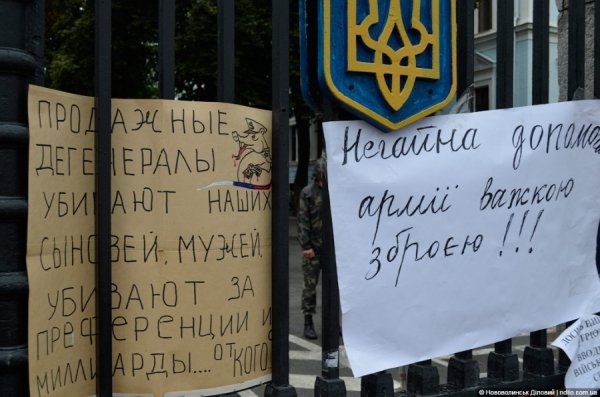 ПРОДАЖНЫЕ
ДЕГЕНЕРАЛЫ
УБИВАЮТ НАШИХ
СЫНОВЕЙ, МУЖЕЙ,
УБИВАЮТ ЗА
ПРЕФЕРЕНЦИИ И
МИЛЛИАРДЫ.... ОТ КОГО
Негайна допомо
армії важкою
зброєю !!!
© Нововолинськ Діловий | ndilo.com.ua